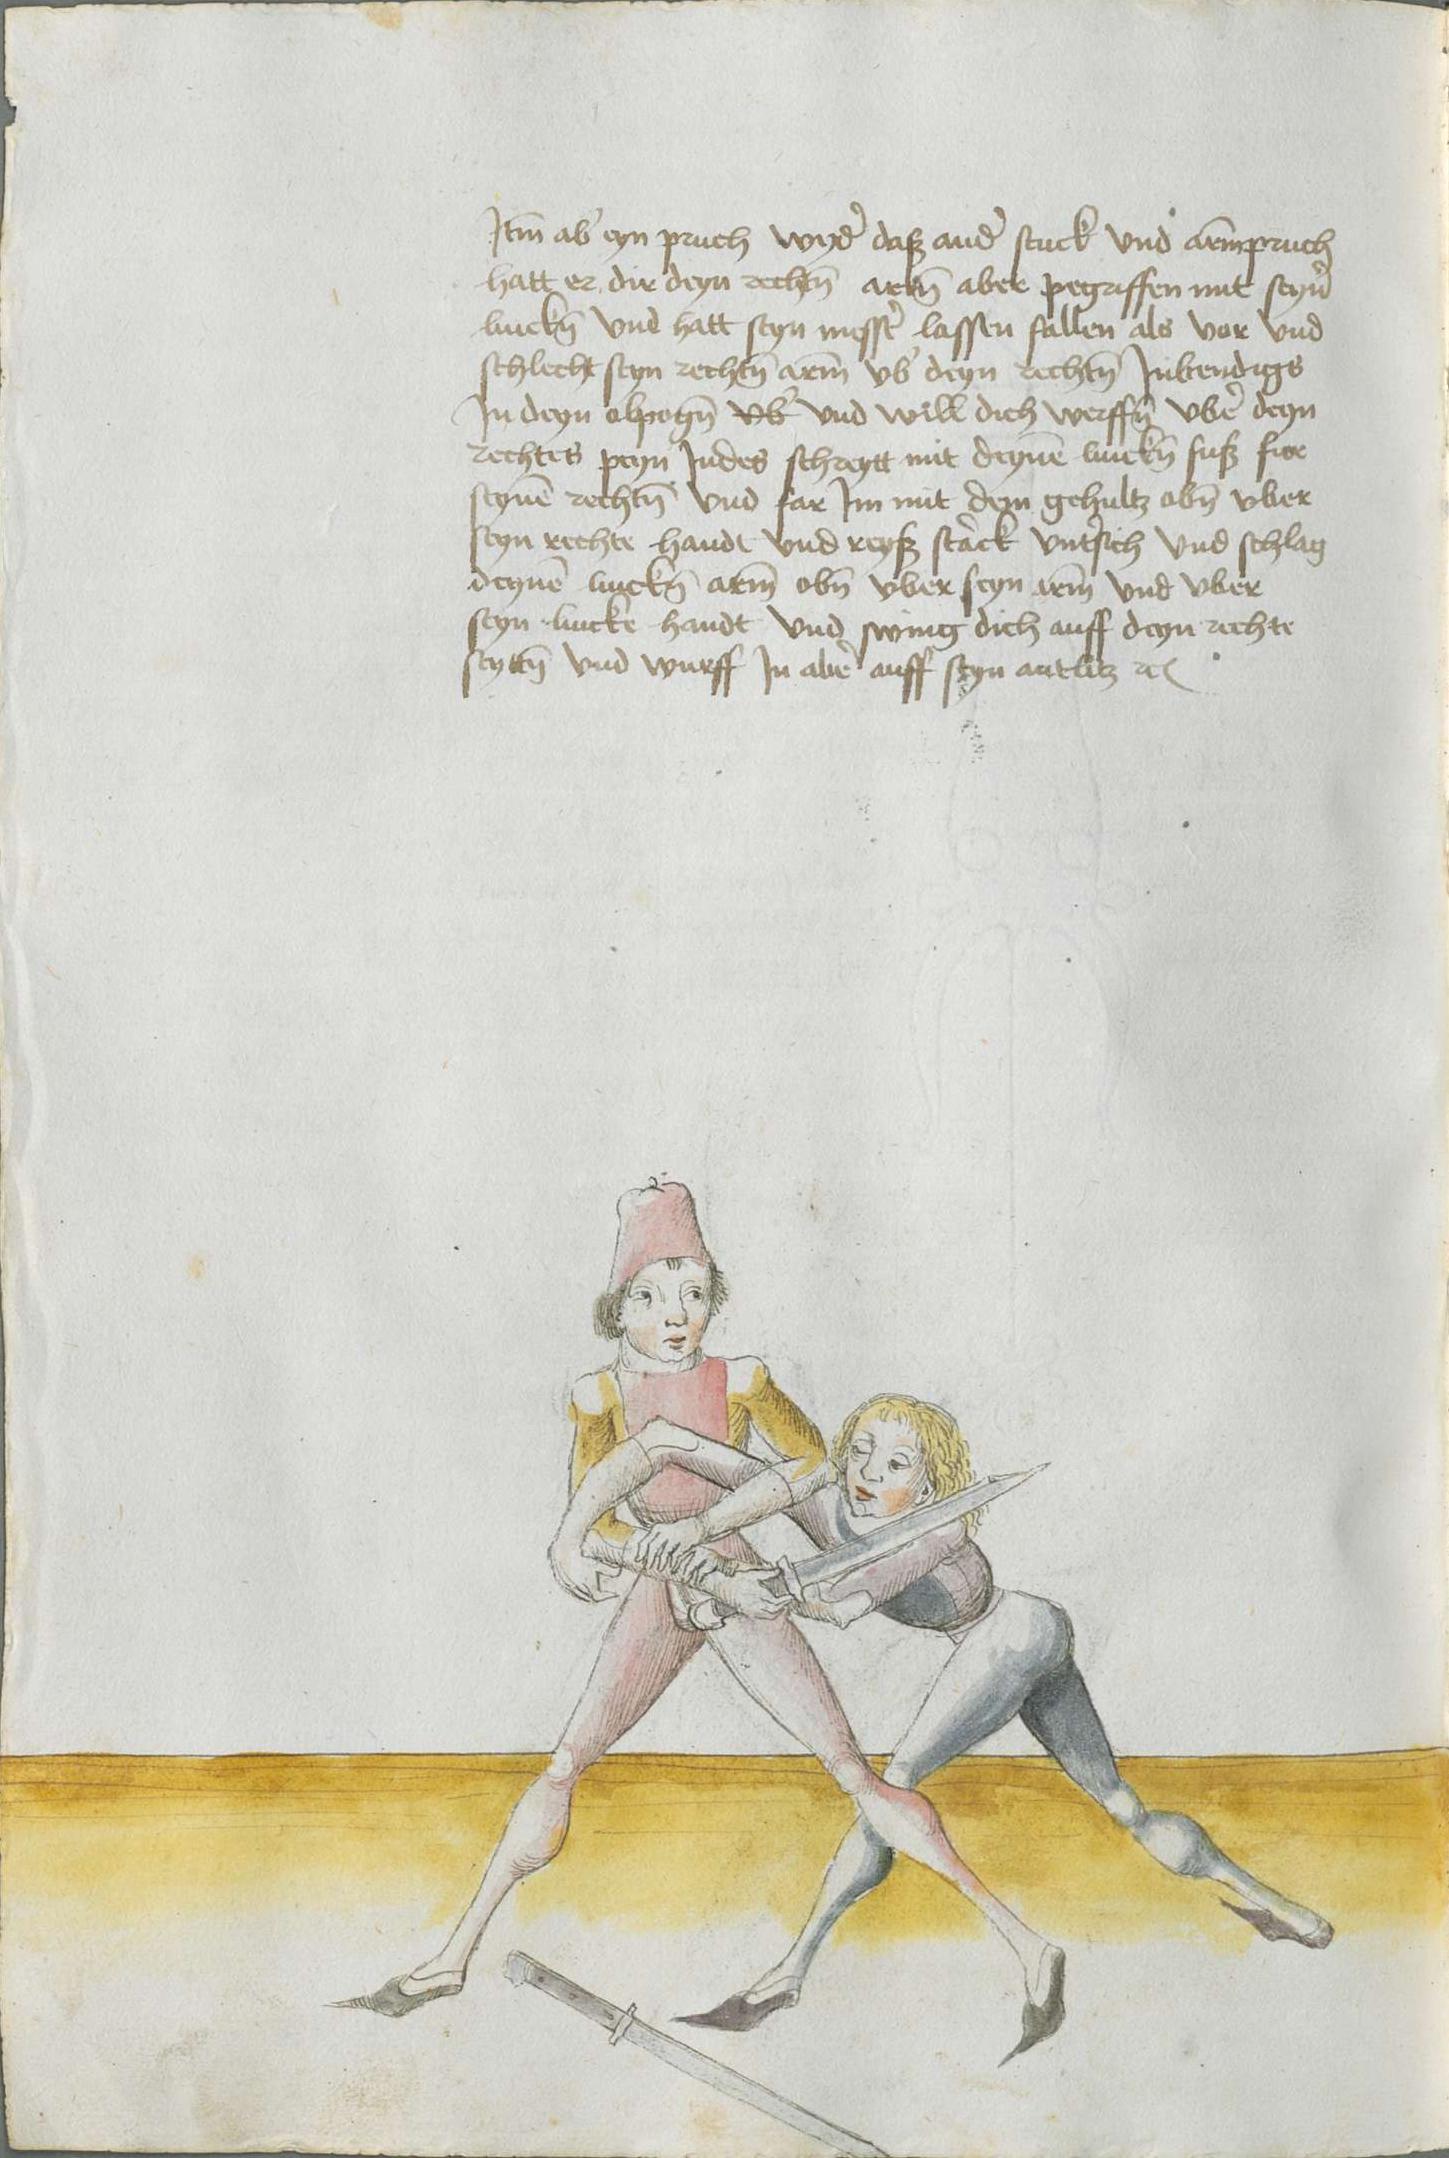 Jtm̄ ab' eyn pruch wyd' daß and' stuck vnd arm̄pruch
hatt er dir deyn rechtn̄ arm̄ aber pegriffen mit seyn'
linckn̄ vnd hatt seyn messe' lassen fallen als vor vnd
schlecht seyn rechtn̄ arm̄ vb' deyn rechtn̄ Jnbendigs
Jn deyn elpogn̄ vnd will dich werffn̄ vbe' deyn
rechtes peyn Jndes schreytt mit deynē linckn̄ fuß fur
seynē rechtn̄ vnd far Jm mit dem gehultz obn̄ vber
seyn rechte handt vnd reyß starck vnt'sich vnd schlag
deynē linckn̄ arm̄ obn̄ vber seyn arm̄ vnd vber
seyn lincke handt vnd swing dich auff deyn rechte
seyttn̄ vnd wurff Jn abe' auff seyn antlitz ꝛc